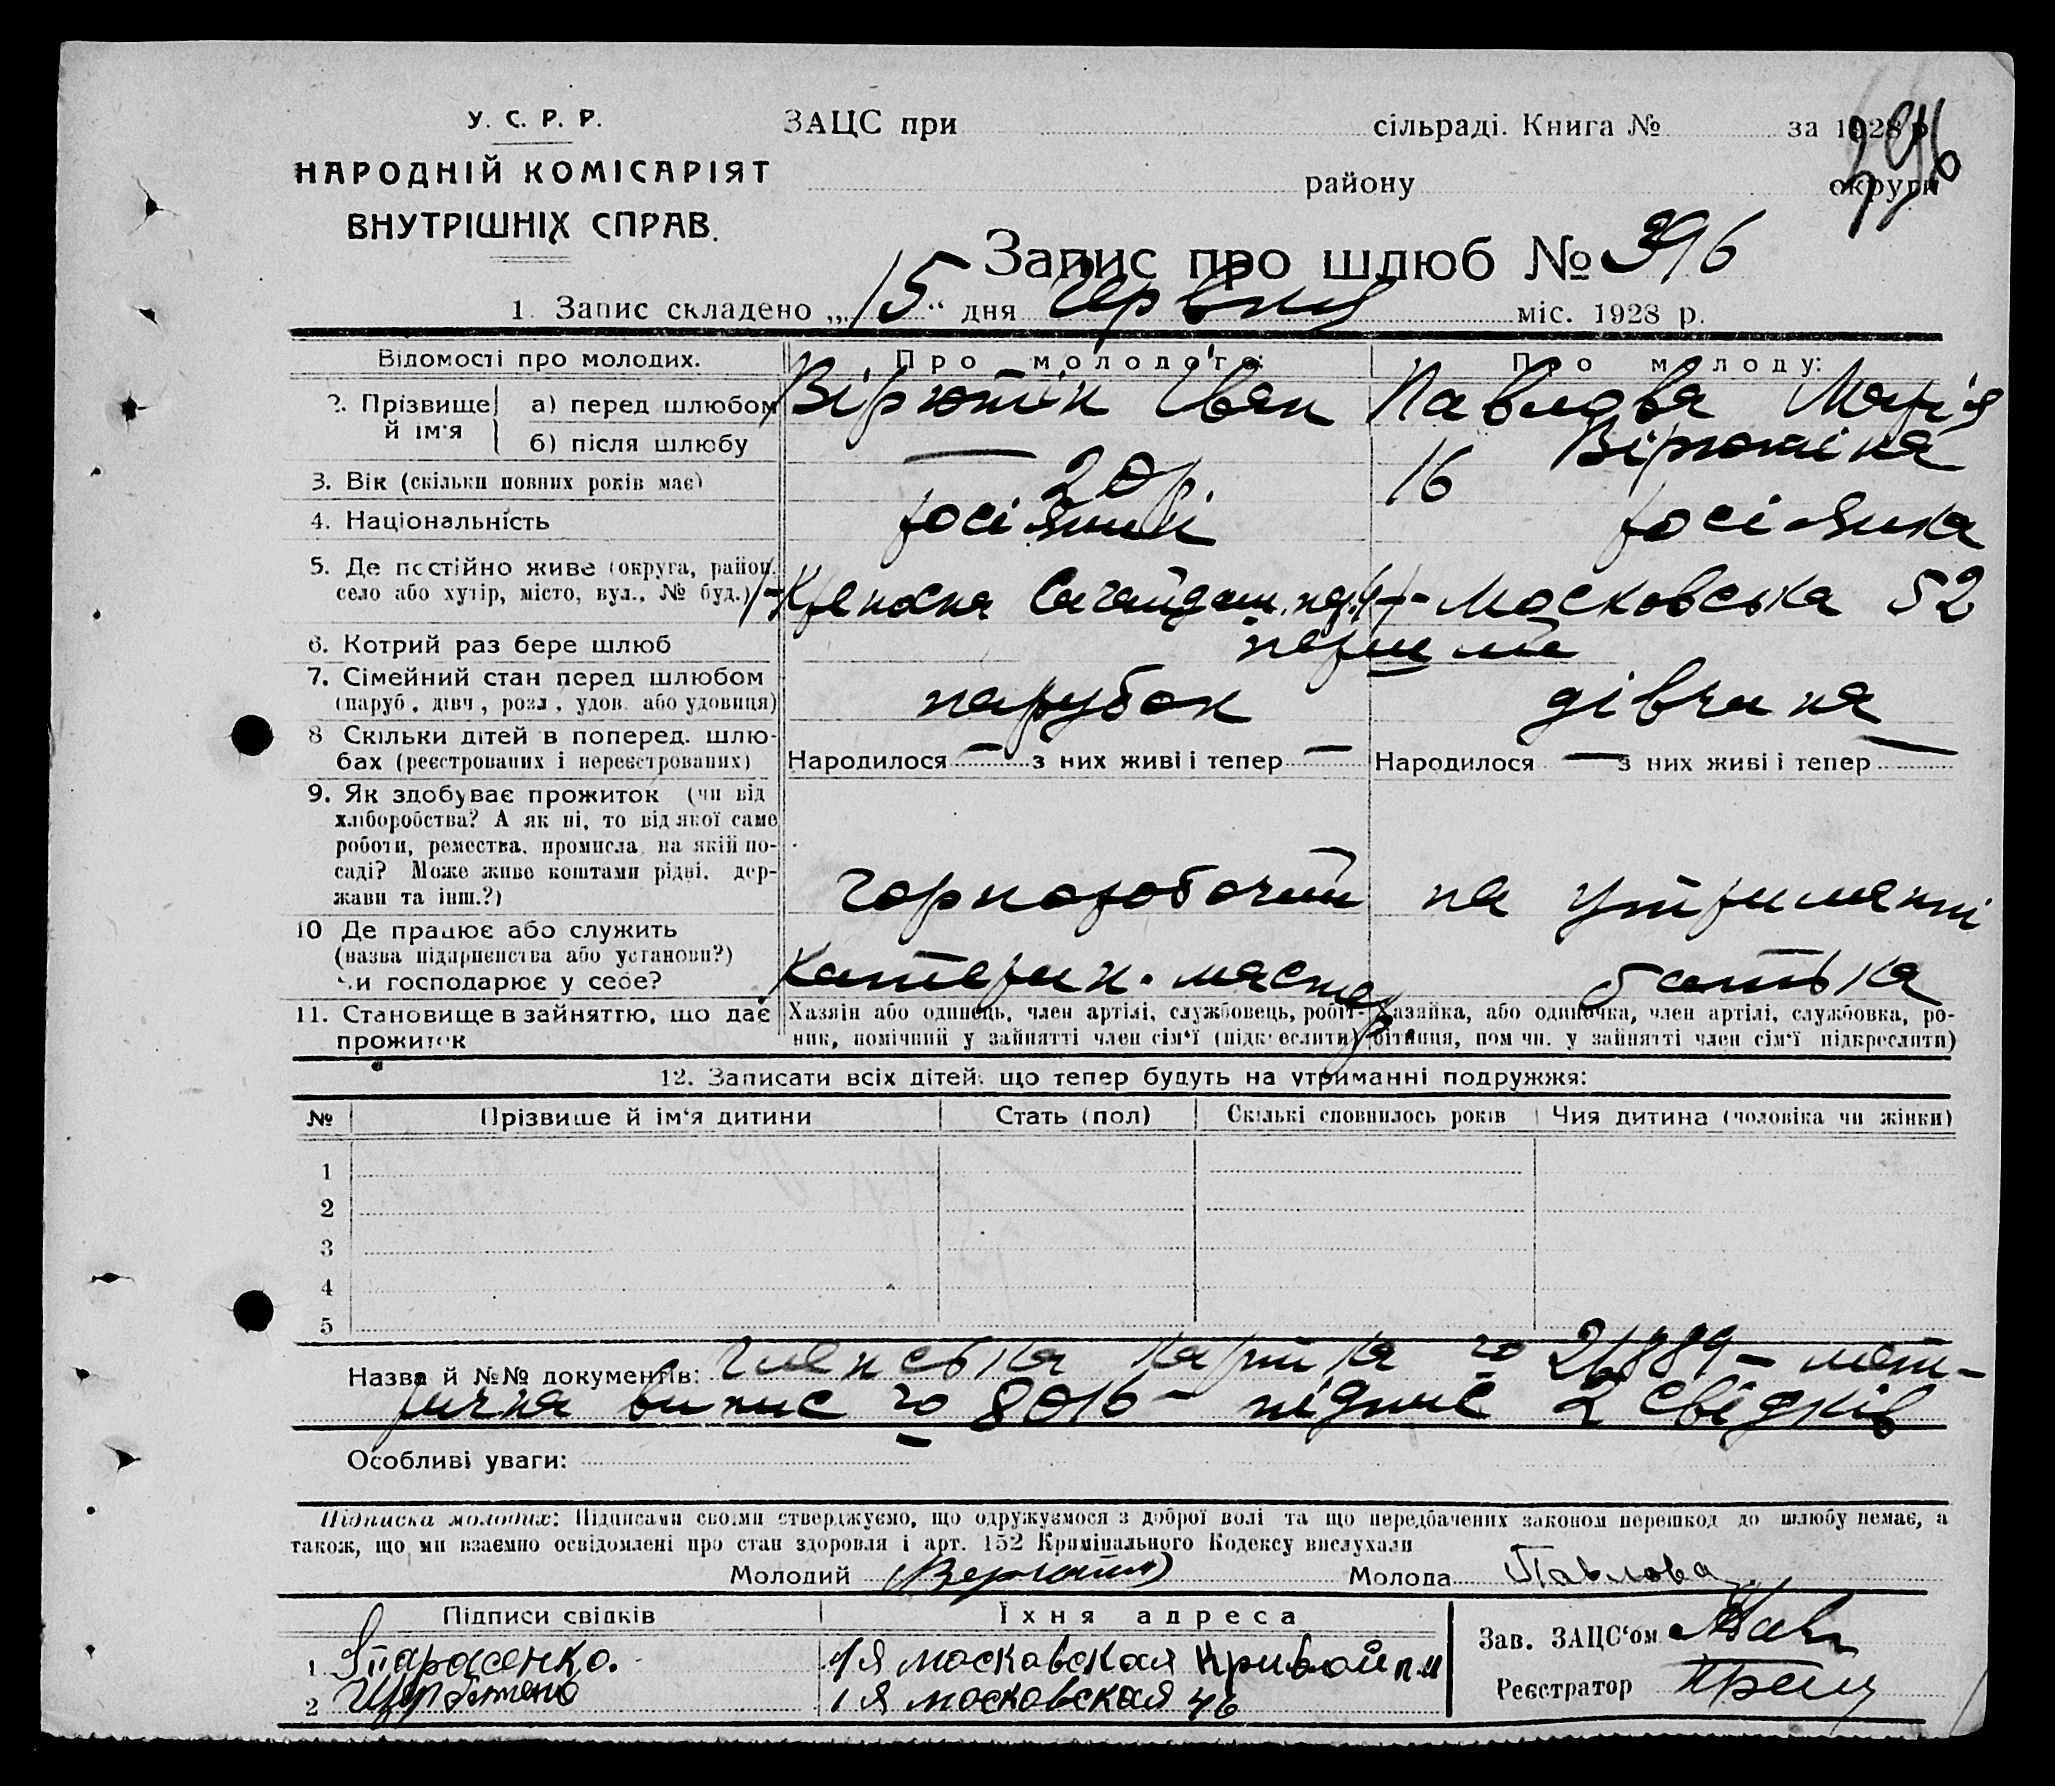 У. С. Р. Р.
НАРОДНІЙ КОМІСАРІЯТ
ВНУТРІШНІХ СПРАВ.
ЗАЦС при сільраді. Книга № за 1928 р.
району округи
396
Запис про шлюб № 396
1. Запис складено „15“ дня Червня міс. 1928 р.
Відомості про молодих. Про молодого: Про молоду:
2. Прізвище й ім'я а) перед шлюбом Вірютін Іван Павлова Марія
б) після шлюбу — Вірютіна
3. Вік (скільки повних років має) 20 р. 16
4. Національність росіянин росіянка
5. Де постійно живе (округа, район, село або хутір, місто, вул., № буд.) Московська 52
6. Котрий раз бере шлюб перший
7. Сімейний стан перед шлюбом (паруб., дівч., розл., удов. або удовиця) парубок дівчина
8 Скільки дітей в поперед. шлюбах (реєстрованих і нереєстрованих) Народилося — з них живі і тепер — Народилося — з них живі і тепер —
9. Як здобуває прожиток (чи від хліборобства? А як ні, то від якої саме роботи, ремества, промисла, на якій посаді? Може живе коштами рідні, держави та інш.?) чорноробочий на утриманні
10 Де працює або служить (назва підприєнства або установи?) чи господарює у себе? Катерин. мастер батька
11. Становище в зайняттю, що дає прожиток
Хазяін або одинець, член артілі, службовець, робітник, помічний у зайнятті член сім'ї (підкреслити)
Хазяйка, або одиночка, член артілі, службовка, робітниця, помічн. у зайнятті член сім'ї підкреслити)
12. Записати всіх дітей, що тепер будуть на утриманні подружжя:
№ Прізвище й ім'я дитини Стать (пол) Скількі сповнилось років Чия дитина (чоловіка чи жінки)
1
2
3
4
5
Назва й №№ документів: членська картка № 26889 – мет-
рична випис № 8016 – підпис 2 свідків
Особливі уваги:
Підписка молодих: Підписами своїми стверджуємо, що одружуємося з доброї волі та що передбачених законом перешкод до шлюбу немає, а
також, що ми взаємно освідомлені про стан здоровля і арт. 152 Кримінального Кодексу вислухали
Молодий Верютин Молода Павлова
Підписи свідків Їхня адреса
1 Тарасенко. 1я московская Кривой
2 1я московская 46
Зав. ЗАЦС'ом
Реєстратор